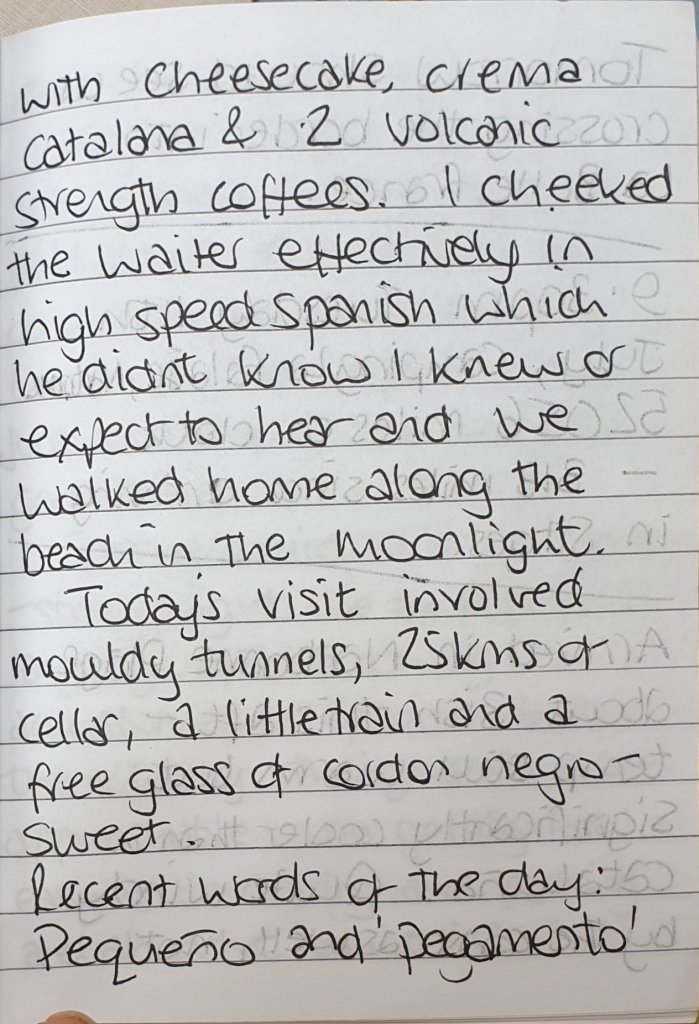 with cheesecake, crema
catalana & 2 volcanic
strength coffees. I cheeked
the waiter effectively in
high speed spanish which
he didnt know I knew or
expect to hear and we
walked home along the
beach in the moonlight.
Today's visit involved
mouldy tunnels, 25kms of
cellar, a little train and a
free glass of cordon negro -
sweet.
Recent words of the day:
Pequeño and 'pegamento'